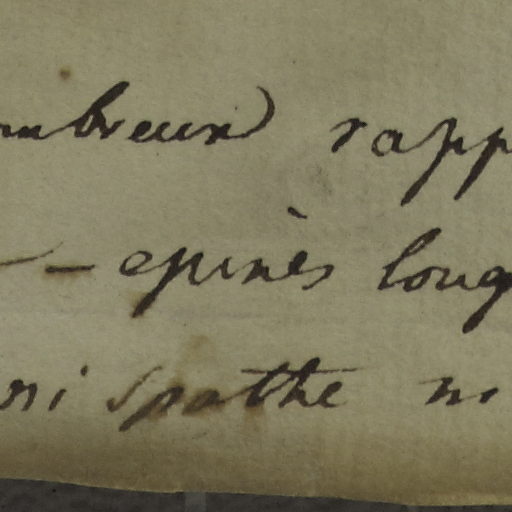 ombreux rapp
- epinès long
ni spathe ni